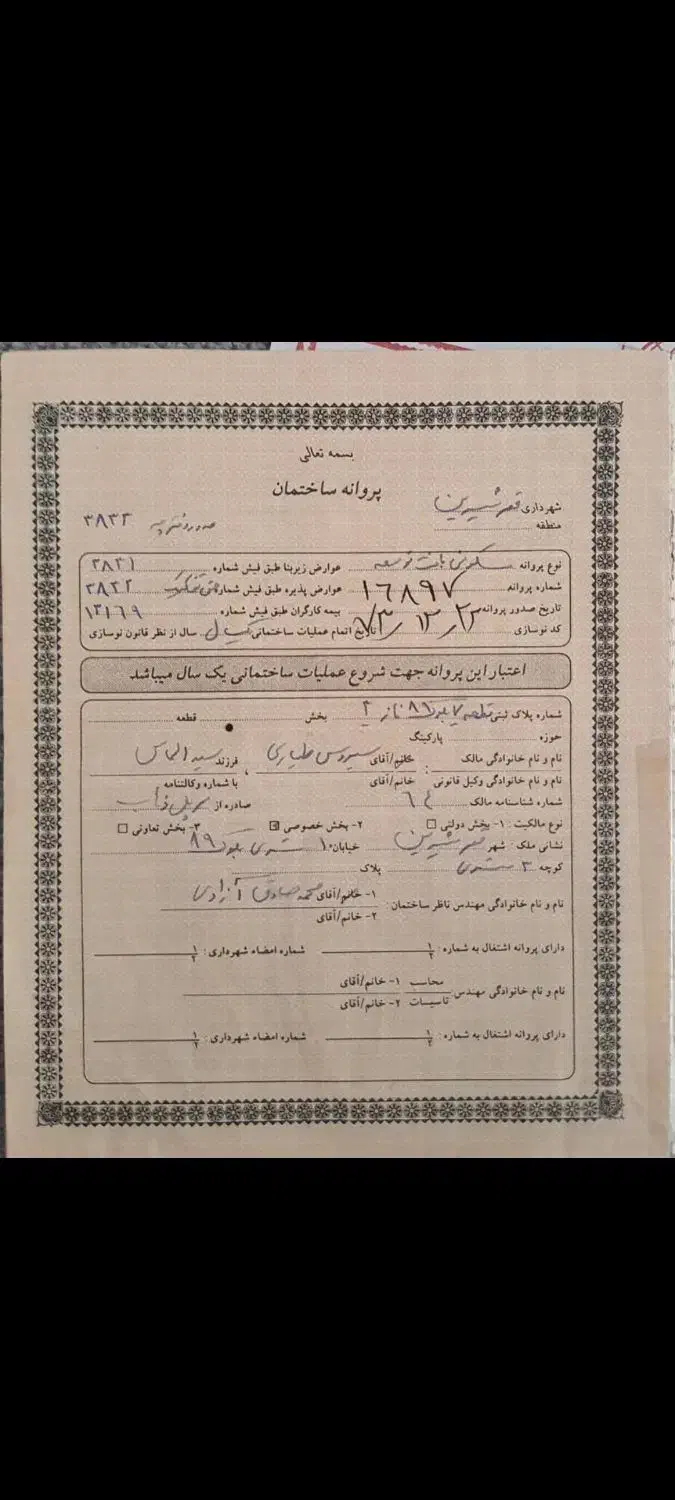 بسمه تعالی
پروانه ساختمان
شهرداری قصرشیرین
منطقه
۳۸۳۲
نوع پروانه سکونی بابت توسعه عوارض زیربنا طبق فیش شماره ۳۸۳۱
شماره پروانه ۱۶۸۹۷ عوارض پذیره طبق فیش شماره ۳۸۳۲
تاریخ صدور پروانه ۷۳/۱۲/۲۳ بیمه کارگران طبق فیش شماره ۱۲۱۶۹
کد نوسازی تاریخ اتمام عملیات ساختمانی یکسال سال از نظر قانون نوسازی
اعتبار این پروانه جهت شروع عملیات ساختمانی یک سال میباشد
شماره پلاک ثبتی قطعه ۷ بلوک ۸۹ فاز ۲ بخش قطعه
حوزه پارکینگ
نام و نام خانوادگی مالک خانم/آقای سیروس طیاری فرزند سید الماس
نام و نام خانوادگی وکیل قانونی : خانم/آقای ، با شماره وکالتنامه
شماره شناسنامه مالک صادره از سرپل ذهاب
نوع مالکیت : ۱- بخش دولتی ۲- بخش خصوصی ۳- بخش تعاونی
نشانی ملک : شهر قصرشیرین خیابان ۱۰ متری بلوک ۸۹
کوچه ۳ متری پلاک
نام و نام خانوادگی مهندس ناظر ساختمان : ۱- خانم/آقای محمدصادق آزادی
۲- خانم/آقای
دارای پروانه اشتغال به شماره : ۱ ۲ شماره امضاء شهرداری : ۱ ۲
نام و نام خانوادگی مهندس محاسب ۱- خانم/آقای
تاسیسات ۲- خانم/آقای
دارای پروانه اشتغال به شماره : ۱ ۲ شماره امضاء شهرداری : ۱ ۲